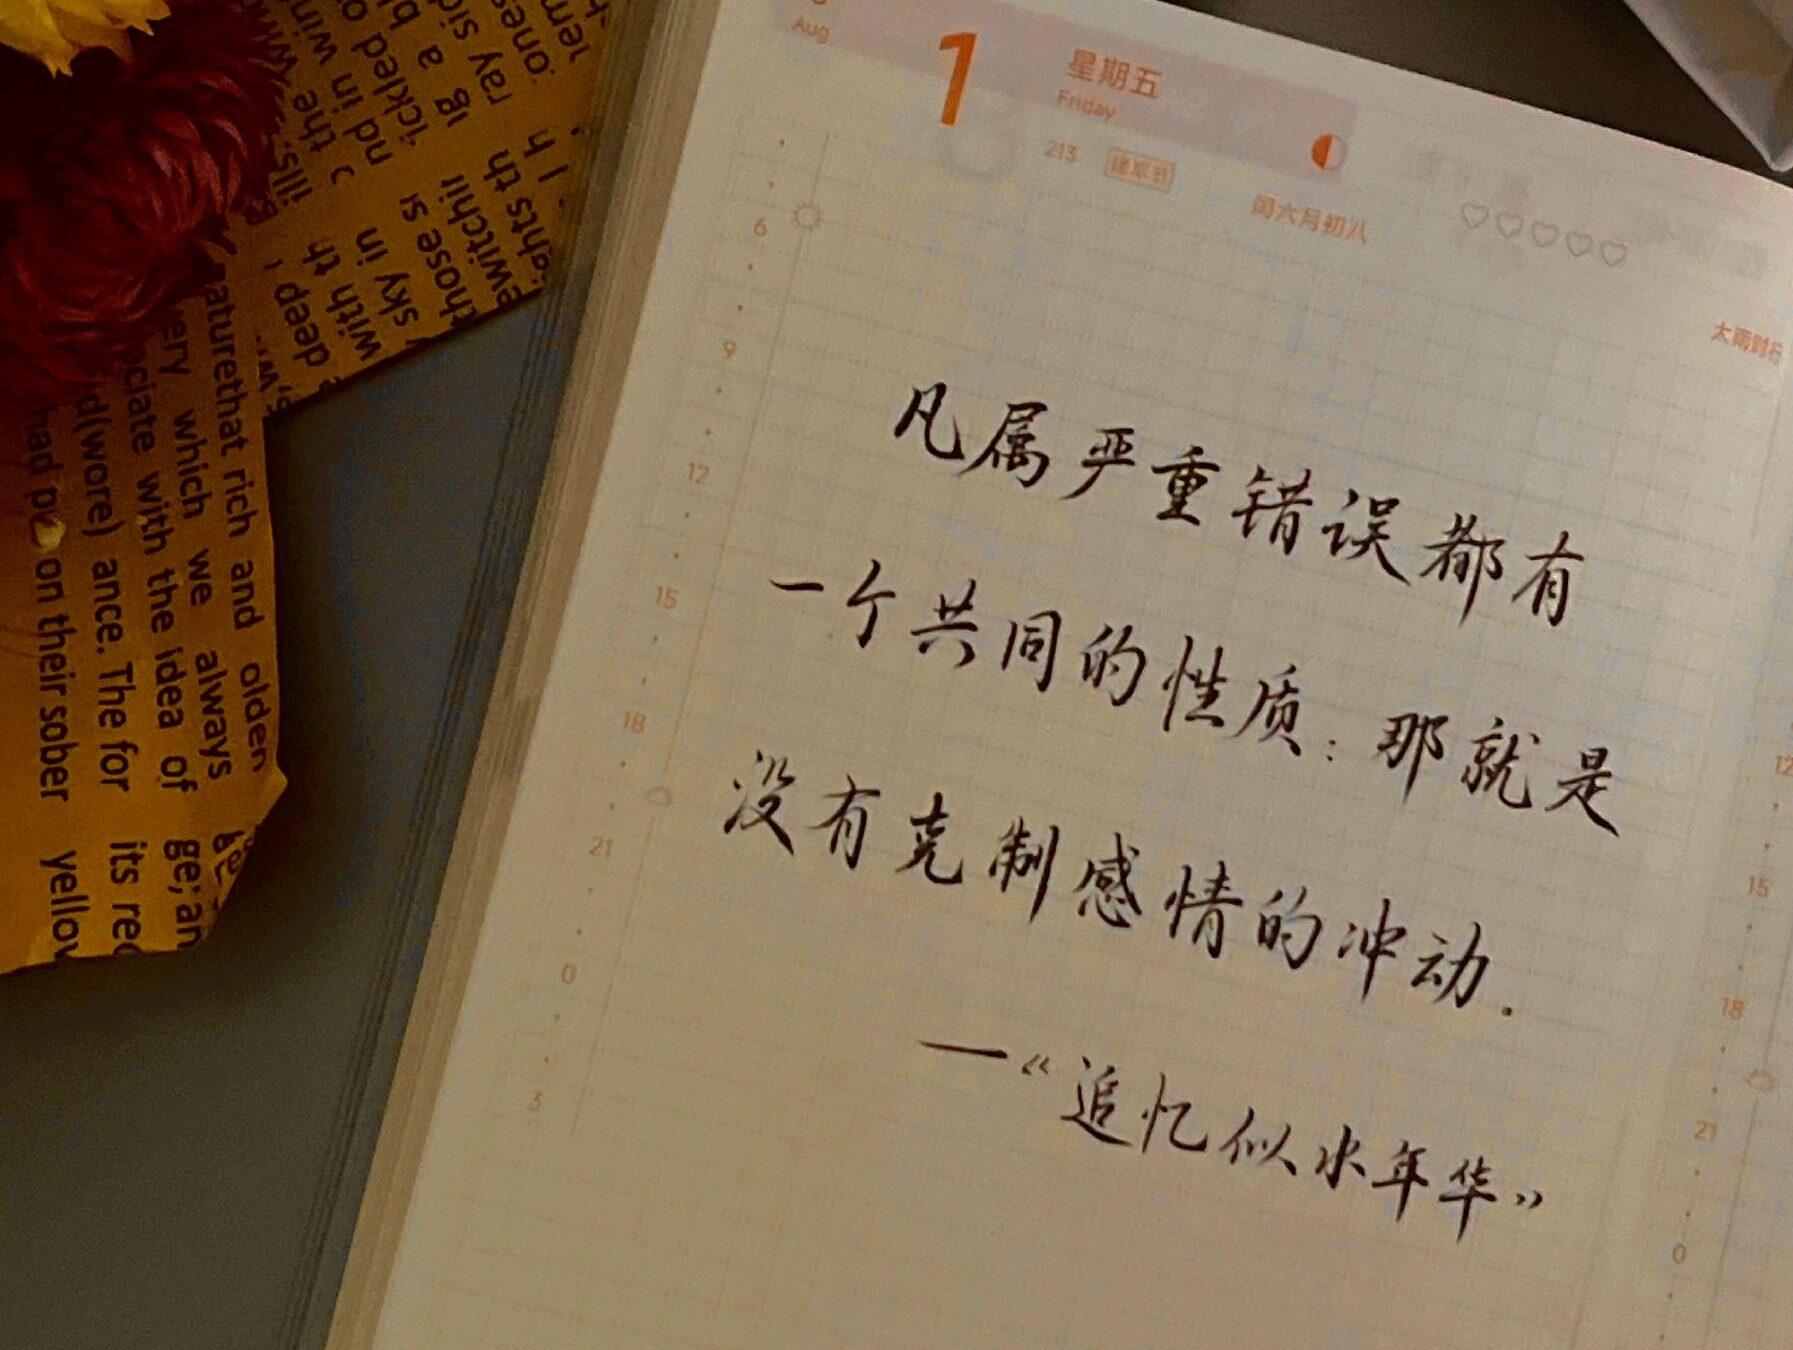 Aug
1
星期五
Friday
213
建军节
闰六月初八
大雨时行
6
9
12
15
18
21
0
3
凡属严重错误都有
一个共同的性质：那就是
没有克制感情的冲动.
—《追忆似水年华》
12
15
18
21
0
naturethat rich and olden
very which we always
ociate with the idea of
d(wore) ance. The for its
had on their sober
the
nd in
ickled
ray
sky in
with th
deep
those